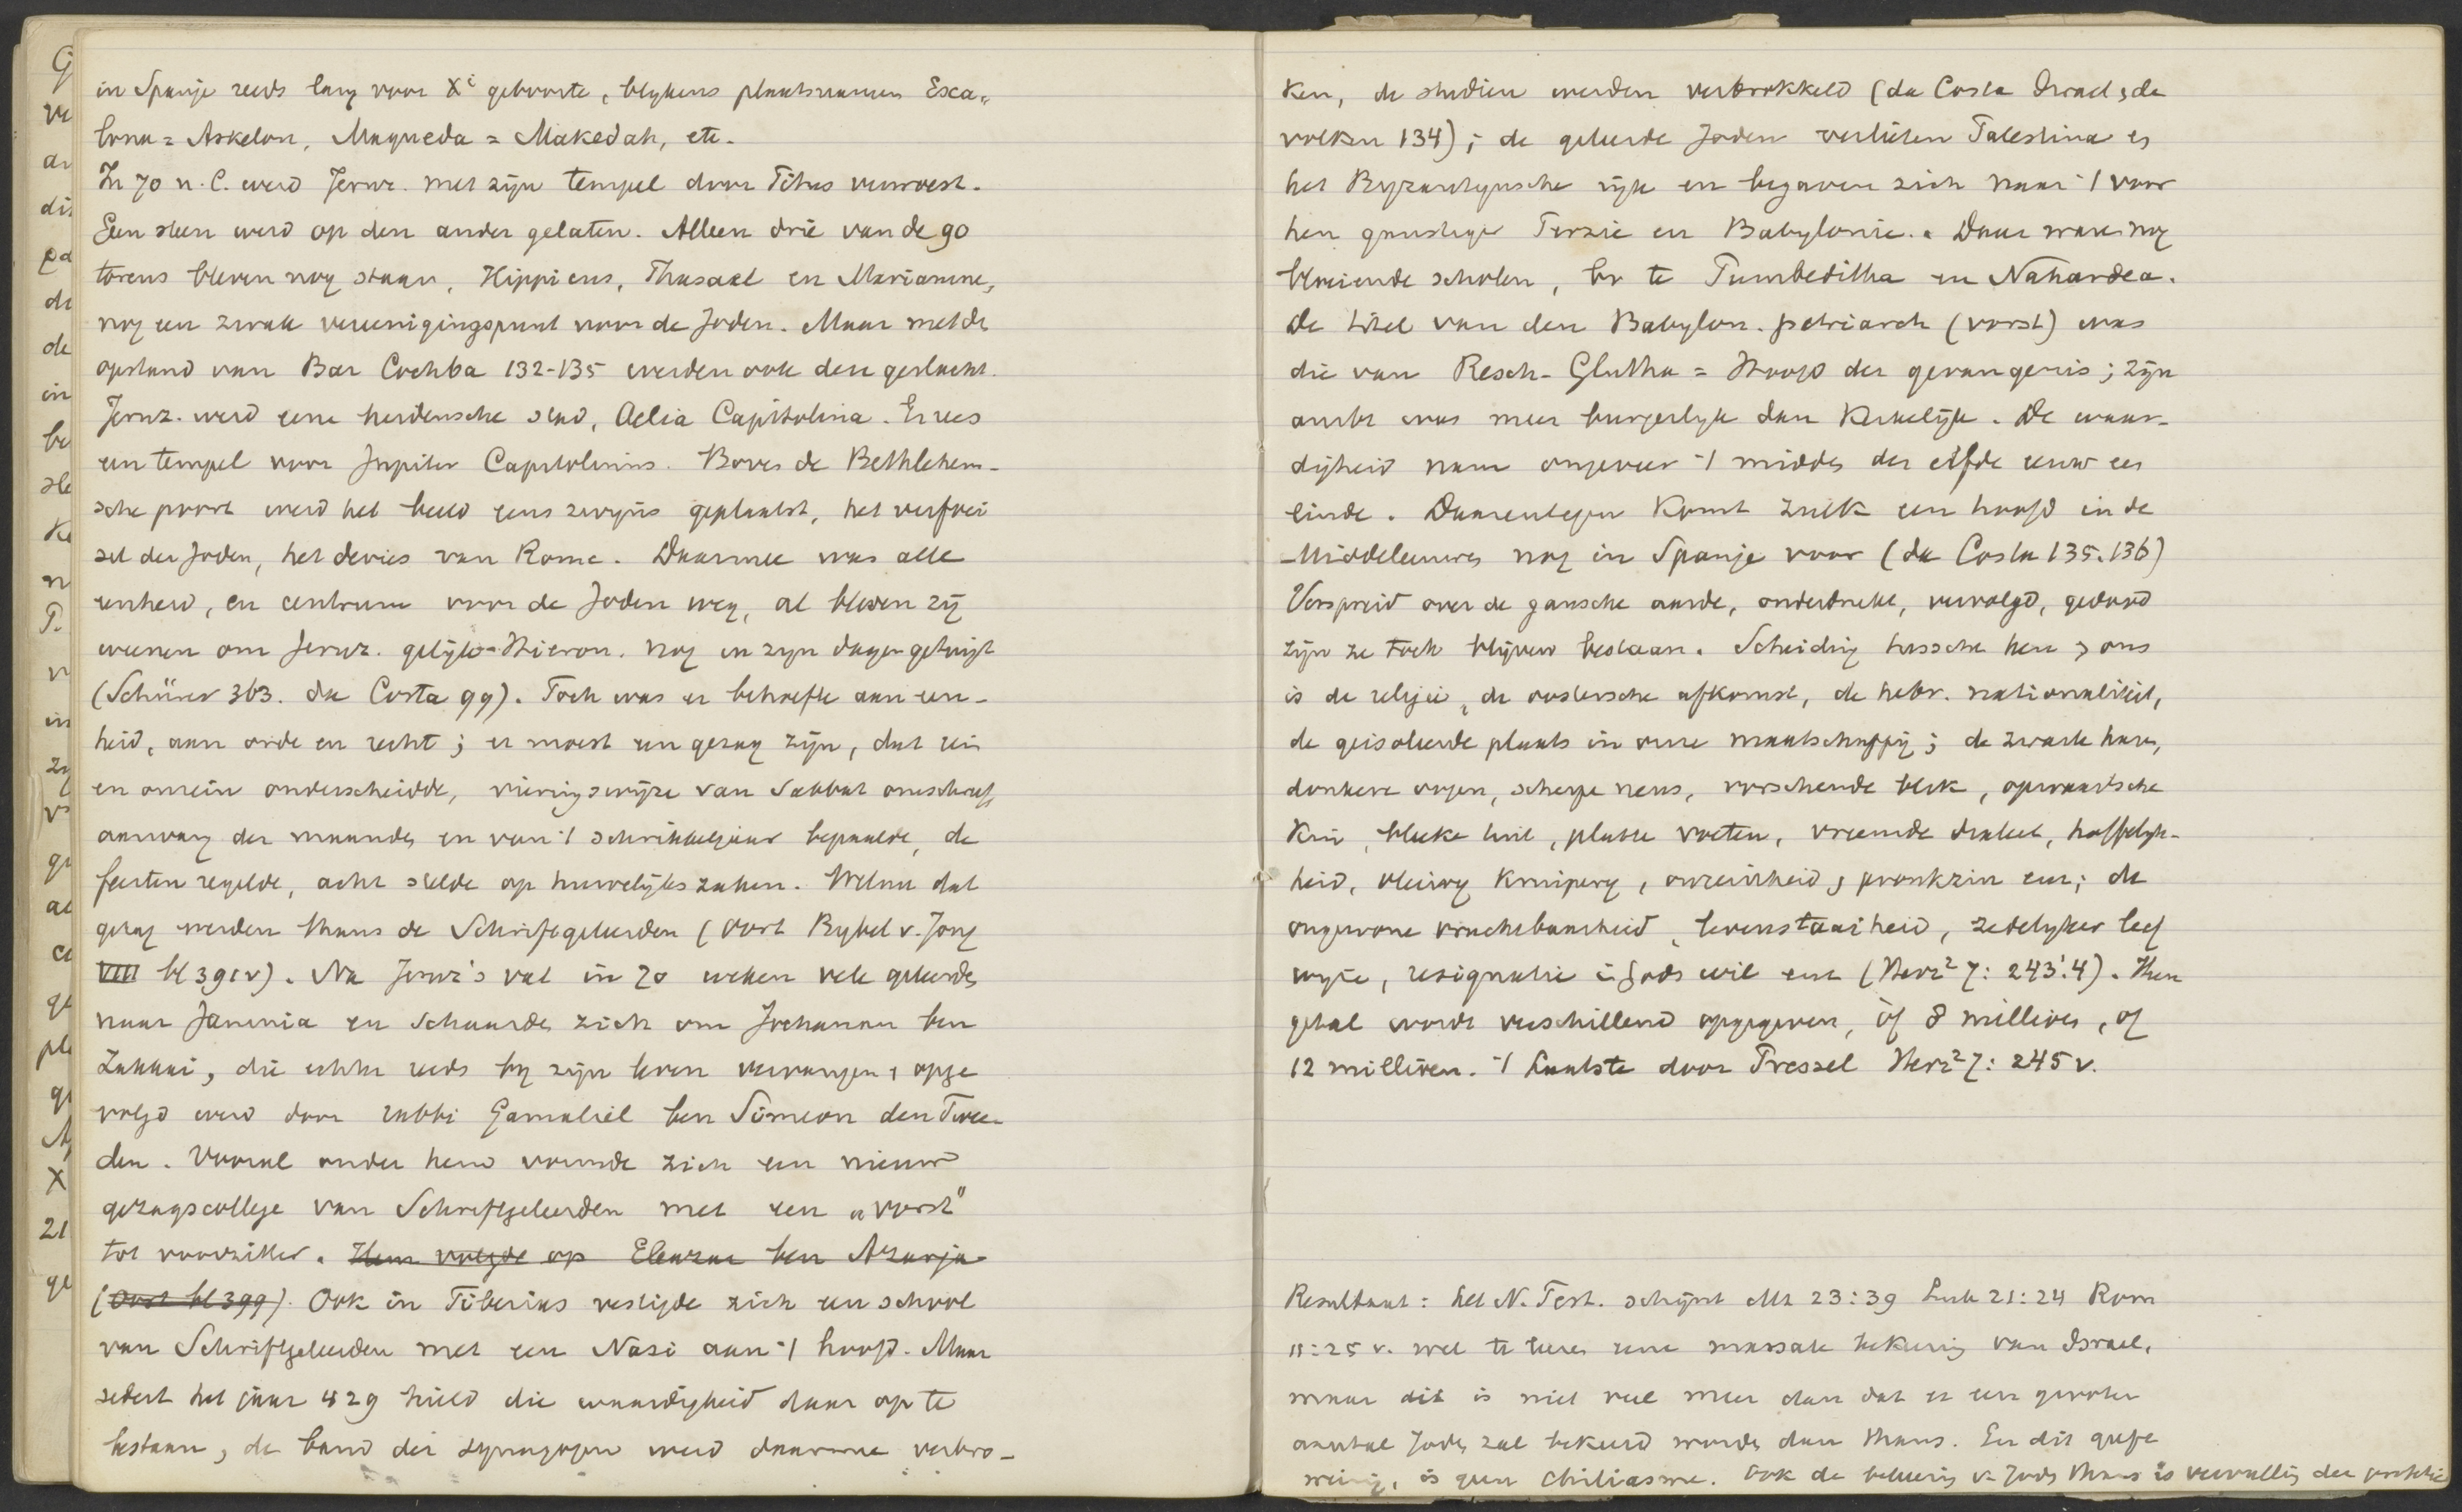 in Spanje reeds lang voor Xi geboorte, blijkens plaatsnamen Esca„
lona = Askelon, Maqueda = Makedah, etc.
In 70 n. C. werd Jeruz. met zijn tempel door Titus verwoest.
Geen steen werd op den ander gelaten. Alleen drie van de 90
torens bleven nog staan, Hippicus, Phasael en Mariamne,
nog een zwak vereenigingspunt voor de Joden. Maar met de
opstand van Bar Cochba 132-135 werden ook deze geslecht.
Jeruz. werd eene heidensche stad, Aelia Capitolina. Er rees
een tempel voor Jupiter Capitolinus. Boven de Bethlehem-
sche poort werd het beeld eens zwijns geplaatst, het verfoei
sel der Joden, het devies van Rome. Daarmee was alle
eenheid, en centrum voor de Joden weg, al bleven zij
weenen om Jeruz. gelijk Hieron. nog in zijn dagen getuigt
(Schürer 363. da Costa 99). Toch was er behoefte aan een-
heid, aan orde en recht; er moest een gezag zijn, dat rein
en onrein onderscheidde, vieringswijze van Sabbat omschreef,
aanvang der maanden en van 't schrikkeljaar bepaalde, de
feesten regelde, acht stelde op huwelijkszaken. Welnu dat
gezag werden thans de Schriftgeleerden (Oort Bijbel v. Jong
VIII bl 391v). Na Jeruz's val in 70 weken vele geleerden
naar Jamnia en schaarden zich om Jochanan ben
Zakkai, die echter reeds bij zijn leven vervangen & opge
volgd werd door rabbi Gamaliël ben Simeon den Twee-
den. Vooral onder hem vormde zich een nieuw
gezagscollege van Schriftgeleerden met een „vorst"
tot voorzitter. Hem volgde op Eleazar ben Azarja
(Oort bl 399). Ook in Tiberias vestigde zich een school
van Schriftgeleerden met een Nasi aan 't hoofd. Maar
sedert het jaar 429 hield die waardigheid daar op te
bestaan, de band der synagogen werd daarmee verbro-
ken, de studiën werden verbrokkeld (da Costa Israel & de
volken 134); de geleerde Joden verlieten Palestina en
het Byzantijnsche rijk en begaven zich naar 't voor
hen gunstiger Perzië en Babylonië. Daar waren nog
bloeiende scholen, bv te Pumbeditha en Nahardea.
De titel van den Babylon. patriarch (vorst) was
die van Resch-Glutha = Hoofd der gevangenis; zijn
ambt was meer burgerlijk dan Kerkelijk. De waar-
digheid nam ongeveer 't midden der elfde eeuw een
einde. Daarentegen komt zulk een hoofd in de
Middeleeuwen nog in Spanje voor (da Costa 135.136)
Verspreid over de gansche aarde, onderdrukt, vervolgd, gedood
zijn ze toch blijven bestaan. Scheiding tusschen hen & ons
is de religie, de oostersche afkomst, de hebr. nationaliteit,
de geisoleerde plaats in onze maatschappij; de zwarte haren,
donkere oogen, scherpe neus, vorschende blik, opwaartsche
kin, bleeke huid, platte voeten, vreemde dialect, hoffelijk-
heid, onreinheid & pronkzin enz; de
ongewone vruchtbaarheid, levenstaaiheid, zedelijker leef
wijze, resignatie in Gods wil enz (Herz² 7: 243.'4). Hun
getal wordt verschillend opgegeven, òf 8 millioen, of
12 millioen. 't Laatste door Pressel Herz² 7: 245 v.
Resultaat: het N. Test. schijnt Mt 23:39 Luk 21:24 Rom
11:25 v. wel te leeren eene massale bekeering van Israel,
maar dit is niet veel meer dan dat er een grooter
aantal Joden zal bekeerd worden dan thans. En dit
is geen chiliasme. Ook de bekeering v. Joden thans is vervulling der profetie